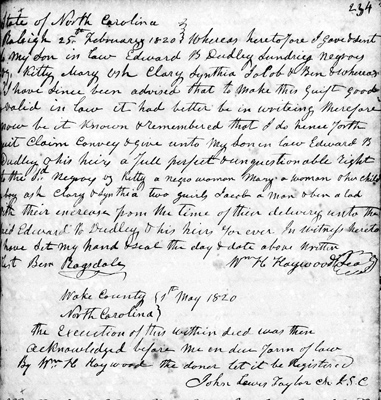 234
State of North Carolina
Raleigh 25th February 1820 } Whereas heretofore I gave & sent
to my Son in law Edward B Dudley Sundries negroes
viz Kitty Mary Ash Clary Synthia Jacob & Ben & whereas
I have since been advised that to make this Guift good
valid in law it had better be in writeing therefore
now be it Known & remembered that I do hence forth
quit Claim Convey & give unto my Son in law Edward B
Dudley & his heirs a full perfect & unquestionable right
to the sd negroes viz Kitty a negro woman Mary a woman & her child
boy ash Clary & Synthia two guirls Jacob a man & ben a lad
with their increase from the time of their delivery unto the
said Edward B Dudley & his heirs for ever In witness hereto
have Set my hand & Seal the day & date above written
Test Ben Ragsdale Wm H Haywood Seal
Wake County } 1st May 1820
North Carolina }
The Execution of this within deed was then
acknowledged before me in due form of law
By Wm H Haywood the donor Let it be Registered
John Lewis Taylor Ch J.S.C